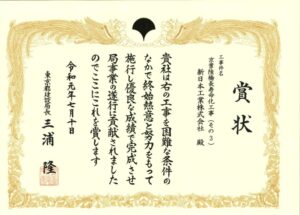 賞状
工事件名
京葉陸橋長寿命化工事(その3)
新日本工業株式会社 殿
貴社は右の工事を困難な条件の
なかで終始熱意と努力をもって
施行し優良な成績で完成させ
局事業の遂行に貢献されました
のでここにこれを賞します
令和元年七月十日
東京都建設局長 三浦 隆